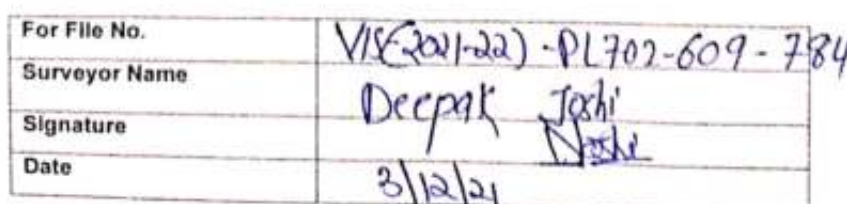 For File No. VIS(2021-22)-PL702-609-784
Surveyor Name Deepak Joshi
Signature
Date 3/12/21